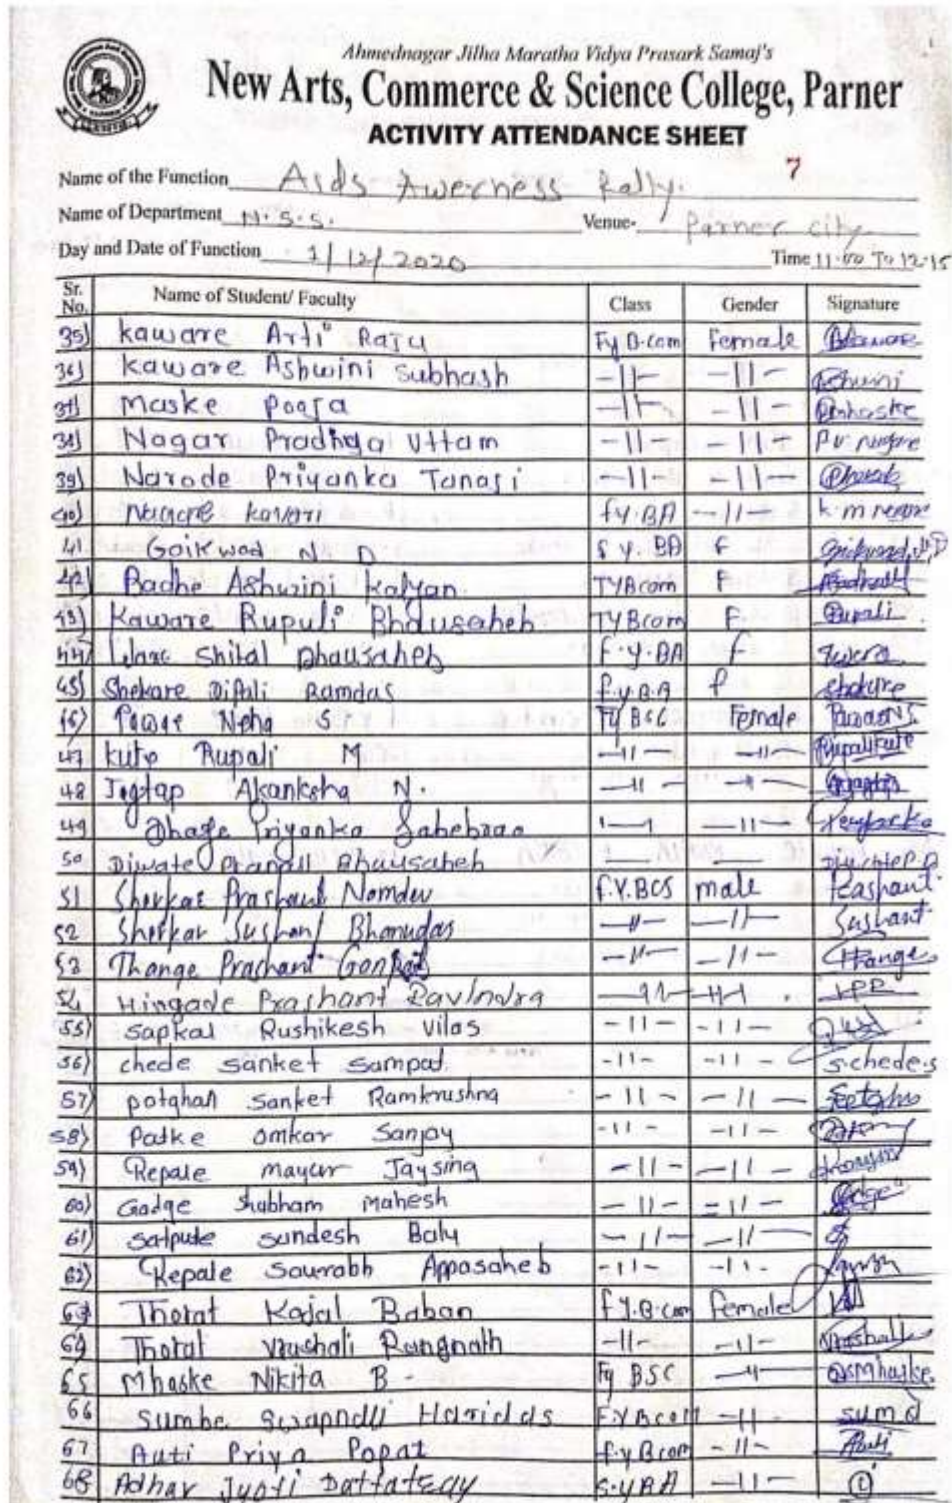 Ahmednagar Jilha Maratha Vidya Prasark Samaj's
New Arts, Commerce & Science College, Parner
ACTIVITY ATTENDANCE SHEET
7
Name of the Function Aids Awerness Rally.
Name of Department N.S.S. Venue- Parner city
Day and Date of Function 1/12/2020 Time 11.00 To 12.15
Sr. No. Name of Student/ Faculty Class Gender Signature
35) Kaware Arti Raju Fy B.com Female
36) Kaware Ashwini Subhash -11- -11-
37) Maske Pooja -11- -11- Pmhaske
38) Nagar Pradnya Uttam -11- -11- P.U. nagre
39) Narode Priyanka Tanaji -11- -11-
40) Nagare kaveri fy.BA -11- k.m nagare
41 Gaikwad N. D S y. BA F Gaikwad N.D
42) Badhe Ashwini Kalyan. TYBcom F
43) Kaware Rupali Bhausaheb TYBcom F. Rupali
44) Ware Shital Bhausaheb F.Y.BA F
45) Shekare Dipali Ramdas f.y.B.A f
46) Pawar Neha S Fy BSC Female PawarNS
47 Kute Rupali M -11- -11- Rupalikute
48 Jagtap Akanksha N. -11- -11-
49 Dhage Priyanka Sahebrao -11-
50 Diwate Pranali Bhausaheb Diwate P.B
51 Sherkar Prashant Namdev F.Y.BCS male Prashant
52 Sherkar Sushant Bhanudas -11- -11- Sushant
53 Thange Prashant Ganpat -11- -11- Thange
54 Hingade Prashant Ravindra -11- -11- HPR
55) Sapkal Rushikesh Vilas -11- -11-
56) chede sanket sampat. -11- -11- s.chede.s
57) potghan sanket Ramkrushna -11- -11-
58) Patke omkar Sanjay -11- -11-
59) Repale mayur Jaysing -11- -11-
60) Gadge Shubham Mahesh -11- =11-
61) satpute sandesh Balu -11- -11-
62) Repale Saurabh Appasaheb -11- -11-
63) Thorat Kajal Baban f.y.B.com female
64) Thorat Vaushali Rangnath -11- -11- Vaushali
65 Mhaske Nikita B - Fy BSC -11- Mhaske.
66 Sumbe Swapnali Haridas F.Y.Bcom -11-
67) Auti Priya Popat f.y.Bcom -11- Auti
68 Adhav Jyoti Dattatray S.y.BA -11-